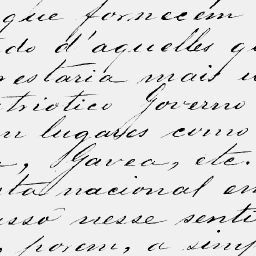 que fornecem
do d'aquelles
restaria mais
triotico Governo
lugares como
Gavea, etc.
nacional em
nesse senti
, porem, a simp